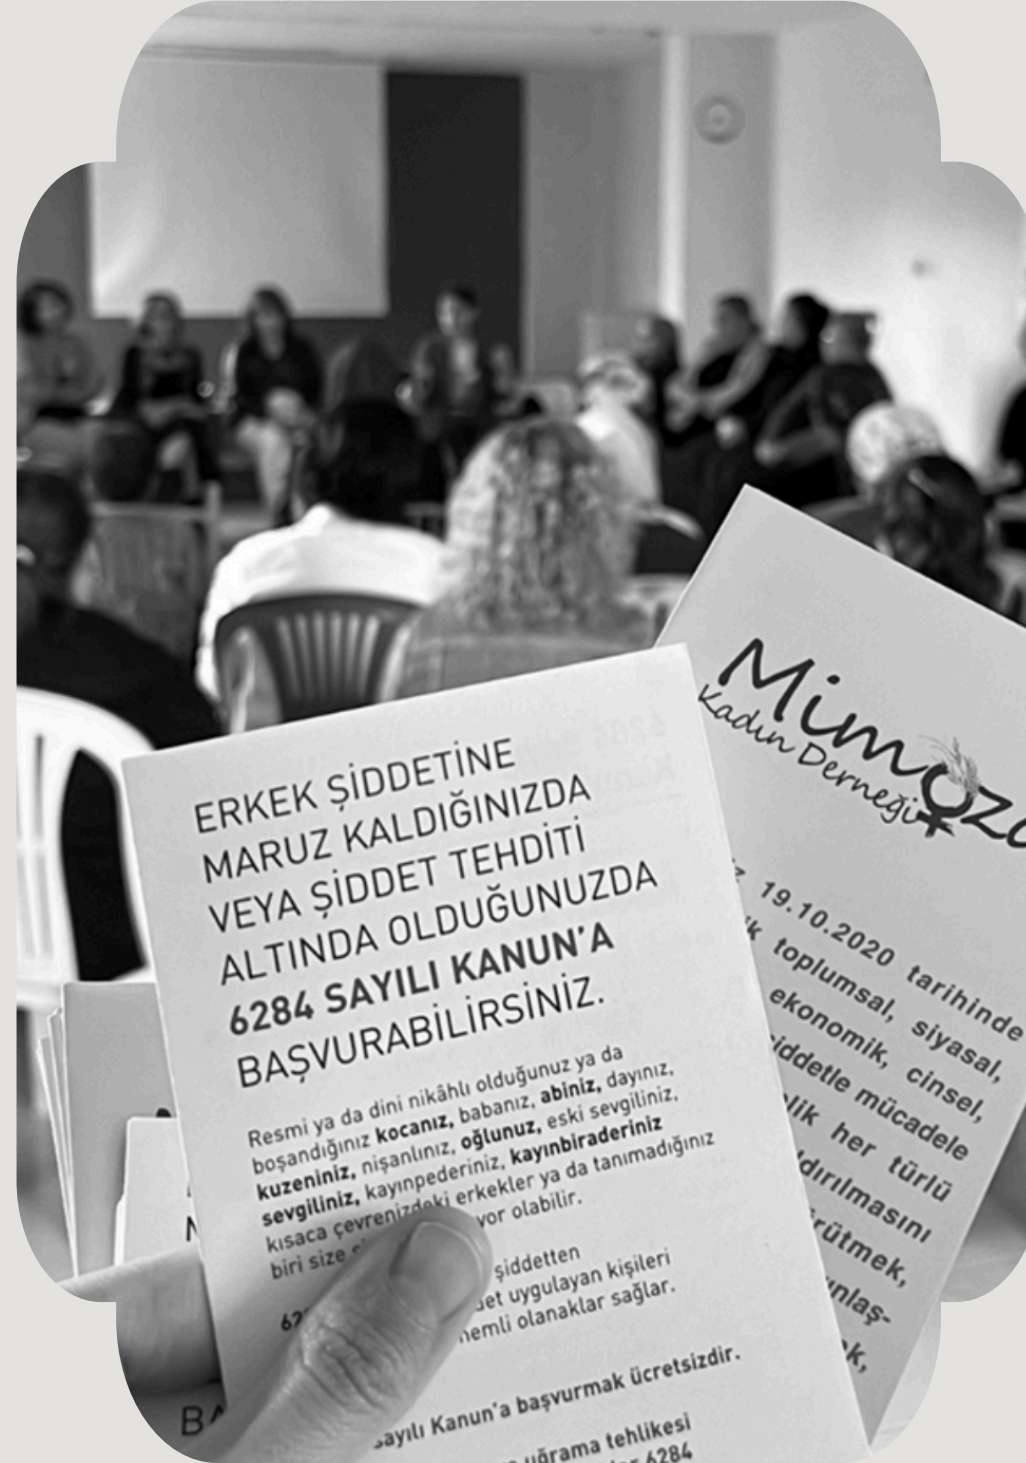 ERKEK ŞİDDETİNE
MARUZ KALDIĞINIZDA
VEYA ŞİDDET TEHDİTİ
ALTINDA OLDUĞUNUZDA
6284 SAYILI KANUN'A
BAŞVURABİLİRSİNİZ.
Resmi ya da dini nikâhlı olduğunuz ya da
boşandığınız kocanız, babanız, abiniz, dayınız,
kuzeniniz, nişanlınız, oğlunuz, eski sevgiliniz,
sevgiliniz, kayınpederiniz, kayınbiraderiniz
kısaca çevrenizdeki erkekler ya da tanımadığınız
biri size olabilir.
şiddetten
uygulayan kişileri
olanaklar sağlar.
sayılı Kanun'a başvurmak ücretsizdir.
uğrama tehlikesi
6284
Mimoza
Kadın Derneği
19.10.2020 tarihinde
toplumsal, siyasal,
ekonomik, cinsel,
şiddetle mücadele
her türlü